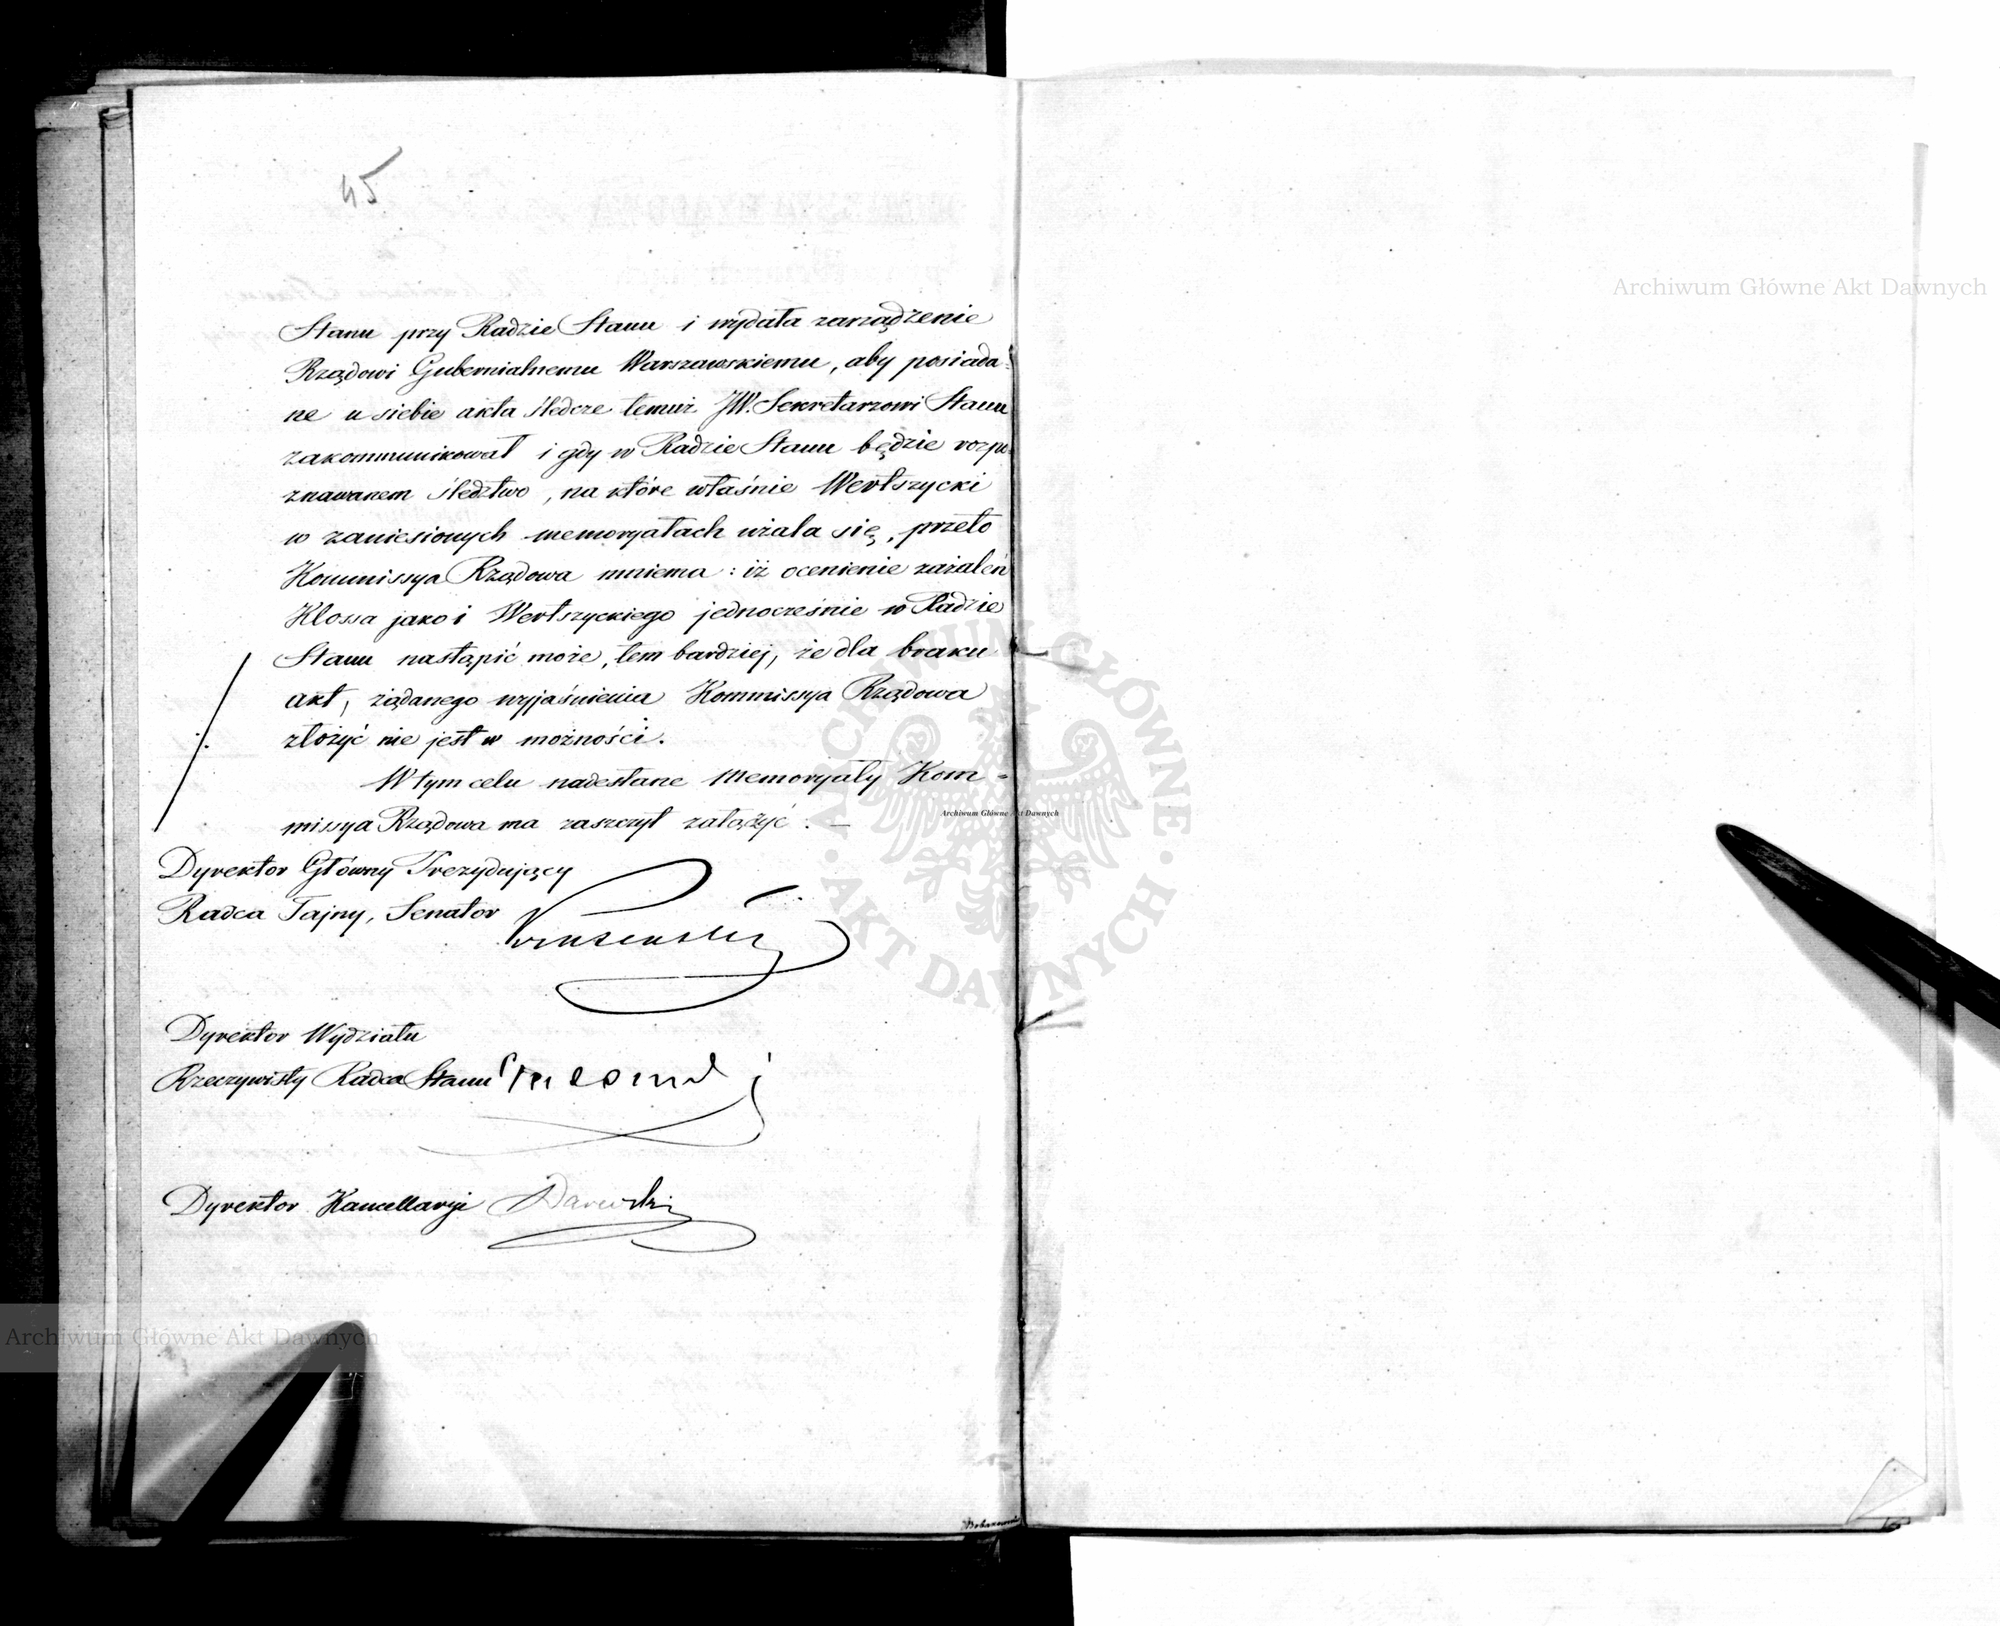 45
Stanu przy Radzie Stanu i wydała zarządzenie
Rządowi Gubernialnemu Warszawskiemu, aby posiada-
ne u siebie akta śledcze temuż JW. Sekretarzowi Stanu
zakommunikował i gdy w Radzie Stanu będzie rozpo-
znawanem śledztwo, na które właśnie Wertszycki
w zaniesionych memoryałach użala się, przeto
Kommissya Rządowa mniema: iż ocenienie zażaleń
Klossa jako i Wertszyckiego jednocześnie w Radzie
Stanu nastąpić może, tem bardziej, że dla braku
akt, żądanego wyjaśnienia Kommissya Rządowa
złożyć nie jest w możności.
W tym celu nadesłane Memoryały Kom-
missya Rządowa ma zaszczyt załączyć. —
Dyrektor Główny Prezydujący
Radca Tajny, Senator
Dyrektor Wydziału
Rzeczywisty Radca Stanu
Dyrektor Kancellaryi Darewski
Archiwum Główne Akt Dawnych
Archiwum Główne Akt Dawnych
Archiwum Główne Akt Dawnych
ARCHIWUM GŁÓWNE AKT DAWNYCH